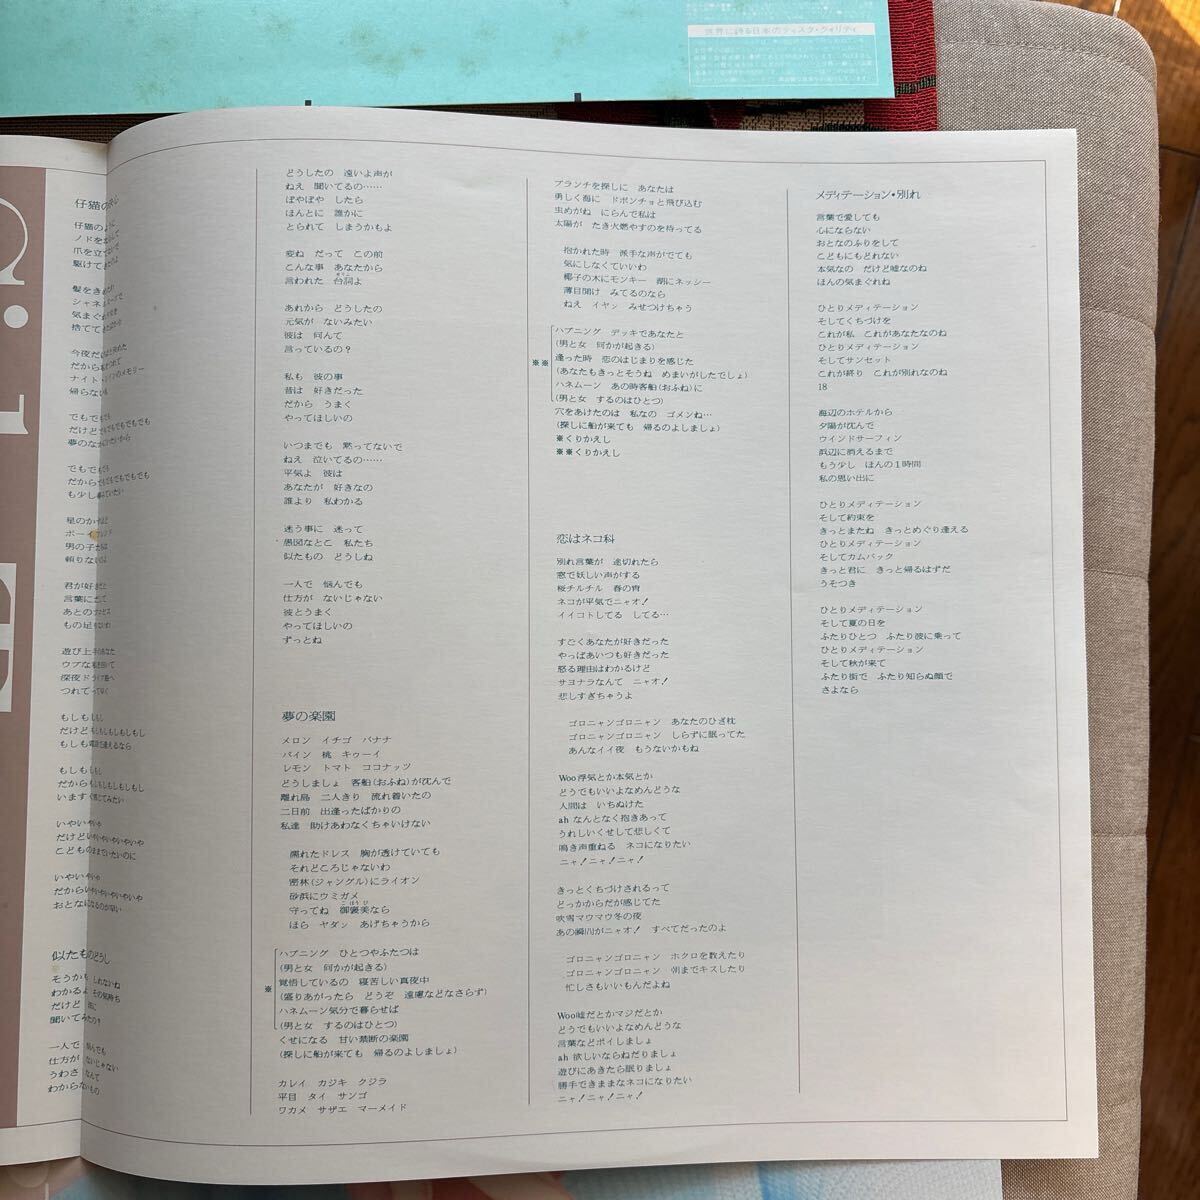 世界に誇る日本のディスク・クォリティ
仔猫の
仔猫のよ
ノドを
爪を立て
駆けてき
髪をき
シャネル
気まぐれ
捨てて
今夜だ
だから
ナイト
のメモリー
帰らない
でもでもでも
だけどでもでもでもでもでも
夢のなか
でもでもでも
だからでもでもでもでもでも
も少し
星のか
ボーイフレンド
男の子
頼りない
君が好き
言葉に
あとの
もの足
遊び上手のあなた
ウブな
深夜ドライブ
つれてってなく
もしもしもし
だけどもしもしもしもしもし
もしも電話で逢えるなら
もしもしもし
だからもしもしもしもしもし
います
いやいやいや
だけどいやいやいやいやいや
こどものままでいたいのに
いやいやいや
だからいやいやいやいやいや
おとなに
似たものどうし
そうかも しれないね
わかるよ その気持ち
だけど
聞いてみたの?
一人で 悩んでも
仕方が ないじゃない
うわさ なんて
わからないもの
どうしたの 遠いよ声が
ねえ 聞いてるの……
ぼやぼや したら
ほんとに 誰かに
とられて しまうかもよ
変ね だって この前
こんな事 あなたから
言われた 台詞よ
あれから どうしたの
元気が ないみたい
彼は 何んて
言っているの?
私も 彼の事
昔は 好きだった
だから うまく
やってほしいの
いつまでも 黙ってないで
ねえ 泣いてるの……
平気よ 彼は
あなたが 好きなの
誰より 私わかる
迷う事に 迷って
愚図なとこ 私たち
似たもの どうしね
一人で 悩んでも
仕方が ないじゃない
彼とうまく
やってほしいの
ずっとね
夢の楽園
メロン イチゴ バナナ
パイン 桃 キゥーイ
レモン トマト ココナッツ
どうしましょ 客船(おふね)が沈んで
離れ島 二人きり 流れ着いたの
二日前 出逢ったばかりの
私達 助けあわなくちゃいけない
濡れたドレス 胸が透けていても
それどころじゃないわ
密林(ジャングル)にライオン
砂浜にウミガメ
守ってね 御褒美なら
ほら ヤダン あげちゃうから
ハプニング ひとつやふたつは
(男と女 何かが起きる)
※ 覚悟しているの 寝苦しい真夜中
(盛りあがったら どうぞ 遠慮などなさらず)
ハネムーン気分で暮らせば
(男と女 するのはひとつ)
くせになる 甘い禁断の楽園
(探しに船が来ても 帰るのよしましょ)
カレイ カジキ クジラ
平目 タイ サンゴ
ワカメ サザエ マーメイド
ブランチを探しに あなたは
勇しく海に ドボンチョと飛び込む
虫めがね にらんで私は
太陽が たき火燃やすのを待ってる
抱かれた時 派手な声がでても
気にしなくていいわ
椰子の木にモンキー 湖にネッシー
薄目開け みてるのなら
ねえ イヤッ みせつけちゃう
ハプニング デッキであなたと
(男と女 何かが起きる)
※※ 逢った時 恋のはじまりを感じた
(あなたもきっとそうね めまいがしたでしょ)
ハネムーン あの時客船(おふね)に
(男と女 するのはひとつ)
穴をあけたのは 私なの ゴメンね…
(探しに船が来ても 帰るのよしましょ)
※くりかえし
※※くりかえし
恋はネコ科
別れ言葉が 途切れたら
窓で妖しい声がする
桜チルチル 春の宵
ネコが平気でニャオ!
イイコトしてる してる…
すごくあなたが好きだった
やっぱあいつも好きだった
怒る理由はわかるけど
サヨナラなんて ニャオ!
悲しすぎちゃうよ
ゴロニャンゴロニャン あなたのひざ枕
ゴロニャンゴロニャン しらずに眠ってた
あんなイイ夜 もうないかもね
Woo浮気とか本気とか
どうでもいいよなめんどうな
人間は いちぬけた
ah なんとなく抱きあって
うれしいくせして悲しくて
鳴き声重ねる ネコになりたい
ニャ!ニャ!ニャ!
きっとくちづけされるって
どっかからだが感じてた
吹雪マウマウ冬の夜
あの瞬間がニャオ! すべてだったのよ
ゴロニャンゴロニャン ホクロを数えたり
ゴロニャンゴロニャン 朝までキスしたり
忙しさもいいもんだよね
Woo嘘だとかマジだとか
どうでもいいよなめんどうな
言葉などポイしましょ
ah 欲しいならねだりましょ
遊びにあきたら眠りましょ
勝手できままなネコになりたい
ニャ!ニャ!ニャ!
メディテーション・別れ
言葉で愛しても
心にならない
おとなのふりをして
こどもにもどれない
本気なの だけど嘘なのね
ほんの気まぐれね
ひとりメディテーション
そしてくちづけを
これが私 これがあなたなのね
ひとりメディテーション
そしてサンセット
これが終り これが別れなのね
18
海辺のホテルから
夕陽が沈んで
ウインドサーフィン
浜辺に消えるまで
もう少し ほんの1時間
私の思い出に
ひとりメディテーション
そして約束を
きっとまたね きっとめぐり逢える
ひとりメディテーション
そしてカムバック
きっと君に きっと帰るはずだ
うそつき
ひとりメディテーション
そして夏の日を
ふたりひとつ ふたり波に乗って
ひとりメディテーション
そして秋が来て
ふたり街で ふたり知らぬ顔で
さよなら